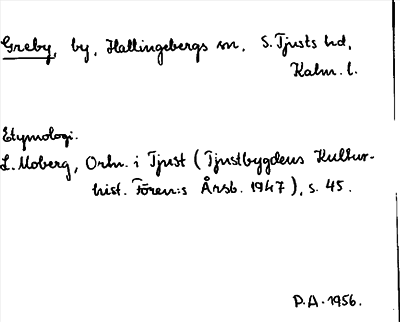 Greby, by, Hallingebergs sn, S. Tjusts hd,
Kalm. l.
Etymologi.
L. Moberg, Ortn. i Tjust (Tjustbygdens Kultur-
hist. Fören:s Årsb. 1947), s. 45.
P.A. 1956.